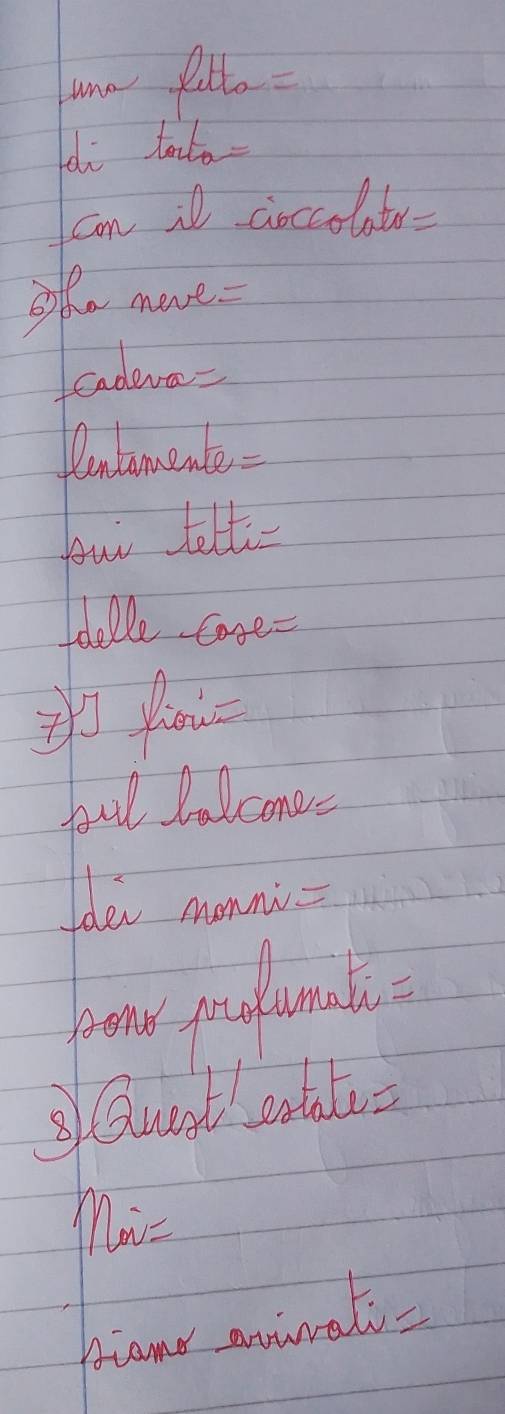 una fetta=
di torta=
con il cioccolato=
6) La neve=
cadeva=
lentamente=
sui tetti=
delle case=
7) I fiori=
sul balcone=
dei nonni=
sono profumati=
8) Quest'estate=
Noi=
siamo arrivati=